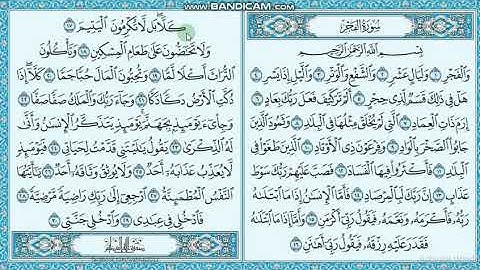 www.BANDICAM.com
سورة الفجر
بسم الله الرحمن الرحيم
والفجر ١ وليال عشر ٢ والشفع والوتر ٣ واليل إذا يسر ٤
هل في ذلك قسم لذي حجر ٥ ألم تر كيف فعل ربك بعاد ٦
إرم ذات العماد ٧ التي لم يخلق مثلها في البلاد ٨ وثمود الذين
جابوا الصخر بالواد ٩ وفرعون ذي الأوتاد ١٠ الذين طغوا في
البلاد ١١ فأكثروا فيها الفساد ١٢ فصب عليهم ربك سوط
عذاب ١٣ إن ربك لبالمرصاد ١٤ فأما الإنسان إذا ما ابتلاه
ربه فأكرمه ونعمه فيقول ربي أكرمن ١٥ وأما إذا ما ابتلاه
فقدر عليه رزقه فيقول ربي أهانن ١٦
كلا بل لا تكرمون اليتيم ١٧
ولا تحاضون على طعام المسكين ١٨ وتأكلون
التراث أكلا لما ١٩ وتحبون المال حبا جما ٢٠ كلا إذا
دكت الأرض دكا دكا ٢١ وجاء ربك والملك صفا صفا ٢٢
وجايء يومئذ بجهنم يومئذ يتذكر الإنسان وأنى
له الذكرى ٢٣ يقول ياليتني قدمت لحياتي ٢٤ فيومئذ
لا يعذب عذابه أحد ٢٥ ولا يوثق وثاقه أحد ٢٦ ياأيتها
النفس المطمئنة ٢٧ ارجعي إلى ربك راضية مرضية ٢٨
فادخلي في عبادي ٢٩ وادخلي جنتي ٣٠